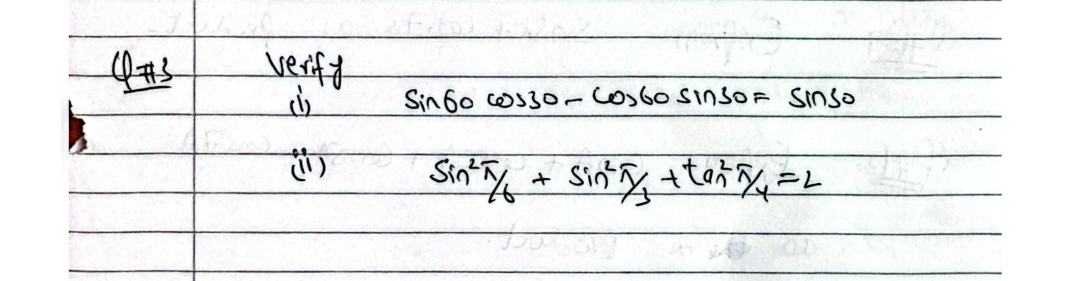 Q#3 Verify
(i) Sin60 cos30 - Cos60 Sin30 = Sin30
(ii) Sin²π/6 + Sin²π/3 + tan²π/4 = 2